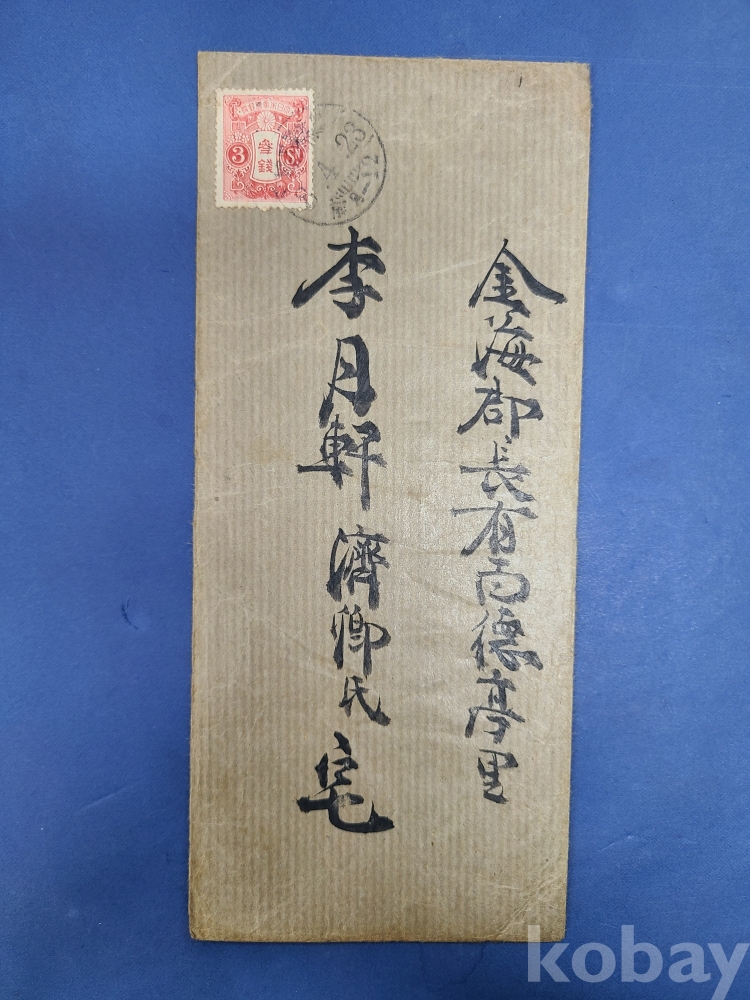 金海郡長有面德亭里
李月軒 濟卿氏 宅
3 參錢 Sn
4 23
8-12
1
kobay